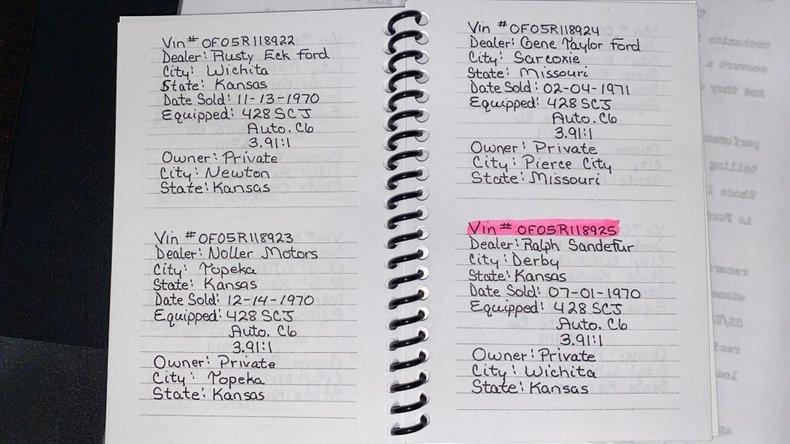 Vin # 0F05R118922
Dealer: Rusty Eck Ford
City: Wichita
State: Kansas
Date Sold: 11-13-1970
Equipped: 428 SCJ
Auto. C6
3.91:1
Owner: Private
City: Newton
State: Kansas
Vin # 0F05R118923
Dealer: Noller Motors
City: Topeka
State: Kansas
Date Sold: 12-14-1970
Equipped: 428 SCJ
Auto. C6
3.91:1
Owner: Private
City: Topeka
State: Kansas
Vin # 0F05R118924
Dealer: Gene Taylor Ford
City: Sarcoxie
State: Missouri
Date Sold: 02-04-1971
Equipped: 428 SCJ
Auto. C6
3.91:1
Owner: Private
City: Pierce City
State: Missouri
Vin # 0F05R118925
Dealer: Ralph Sandefur
City: Derby
State: Kansas
Date Sold: 07-01-1970
Equipped: 428 SCJ
Auto. C6
3.91:1
Owner: Private
City: Wichita
State: Kansas